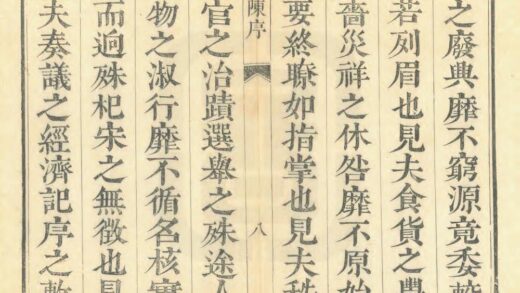 之廢典靡不窮源竟委
若列眉也見夫食貨之豐
嗇災祥之休咎靡不原始
要終瞭如指掌也見夫秩
陳序
八
官之治蹟選舉之殊途人
物之淑行靡不循名核實
而迥殊杞宋之無徵也見
夫奏議之經濟記序之